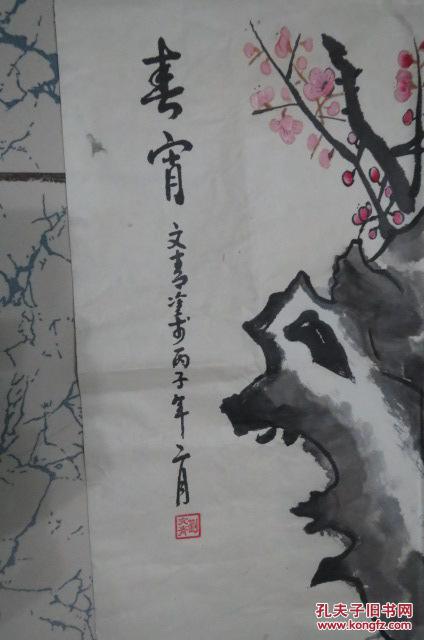 春宵
文青塗於丙子年二月
劉文青
孔夫子旧书网
www.kongfz.com